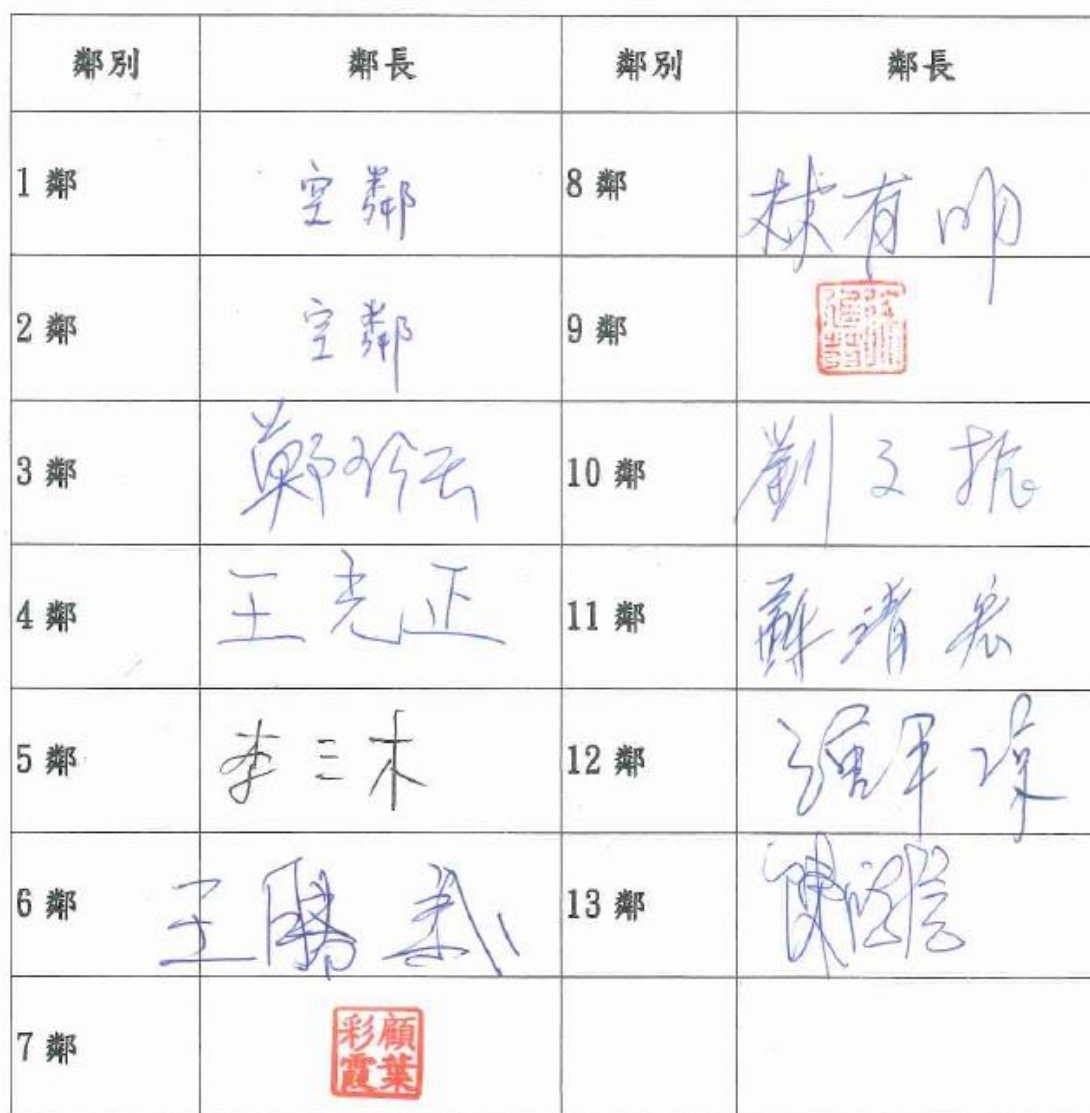 鄰別 鄰長 鄰別 鄰長
1 鄰 空鄰 8 鄰 林有
2 鄰 空鄰 9 鄰
3 鄰 鄭玲云 10 鄰 劉文振
4 鄰 王光正 11 鄰 蘇靖宏
5 鄰 李三木 12 鄰
6 鄰 王勝 13 鄰 陳
7 鄰 顧葉彩霞